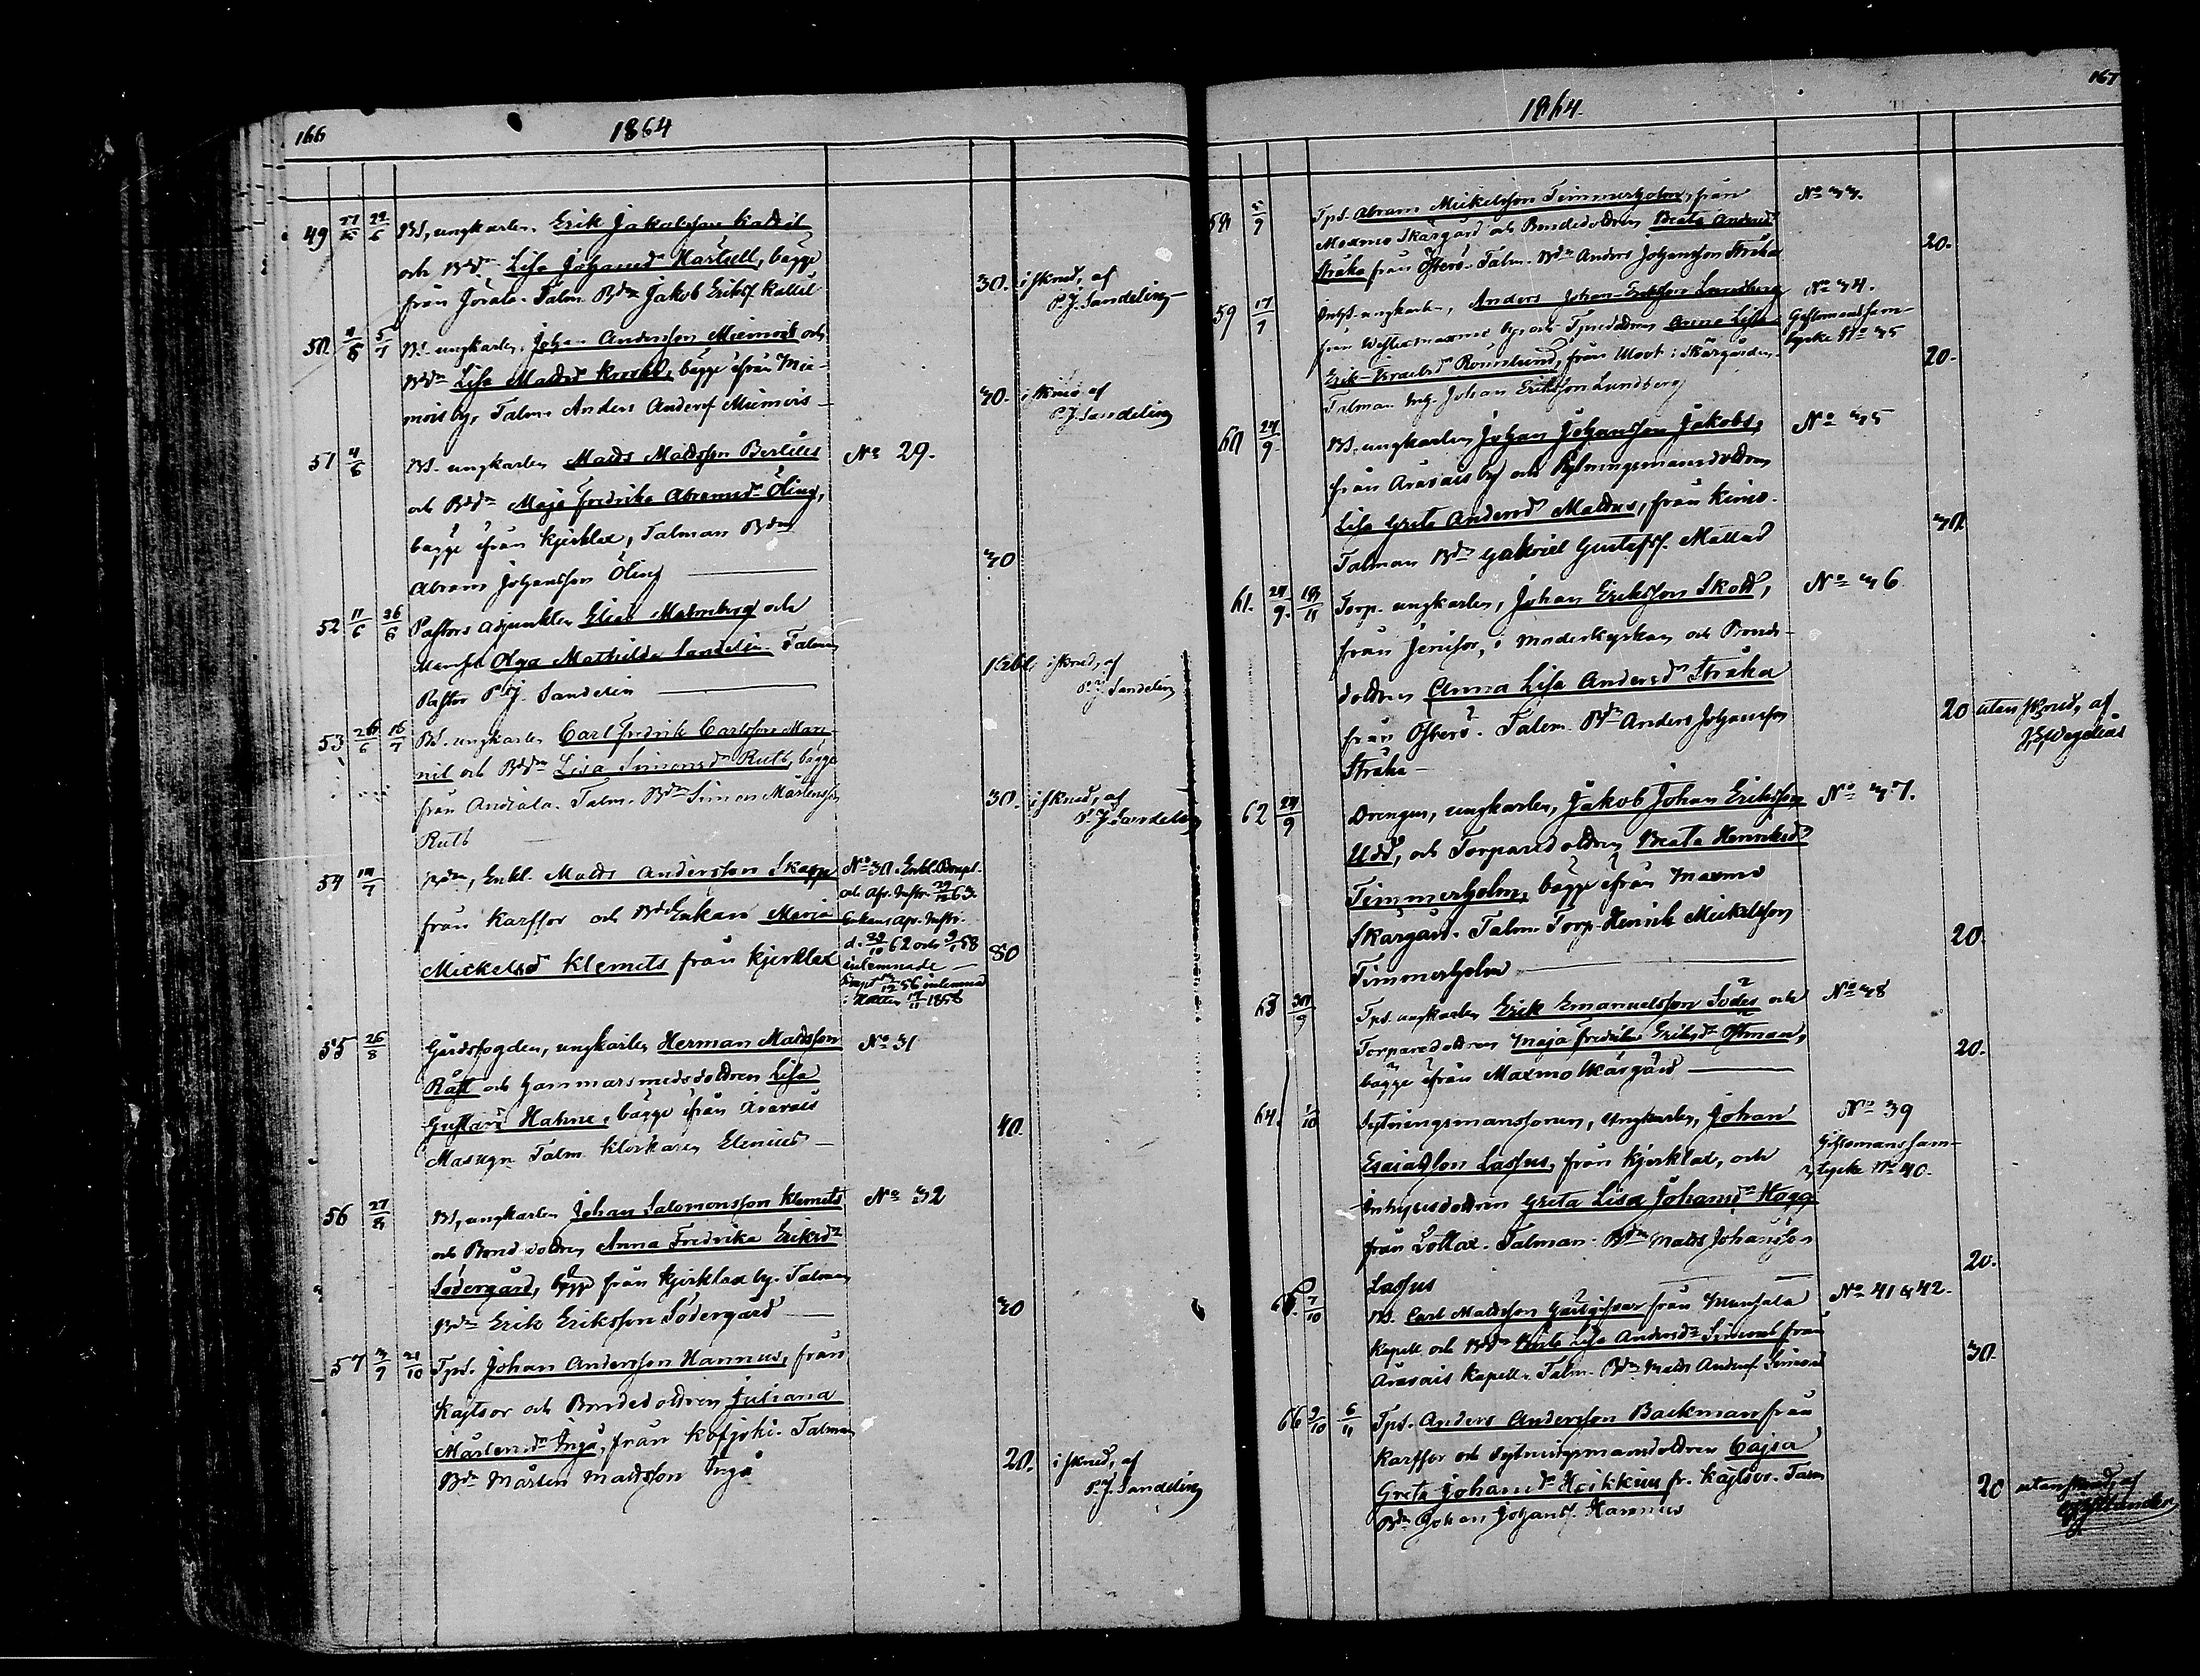 166
1864
49 27/5 24/6 BS, ungkarlen, Erik Jakobsson Kallil
och Bddn Lisa Johansdr Martell, bägge
från Jörala. Talm. Bdn Jakob Eriksf. Kallil
30. i skrud, af
P. J. Sandelin
50 4/6 5/7 BS. ungkarlen, Johan Andersson Miemois och
Bddn Lisa Mattsdr bägge ifrån Mie-
mois by, Talm. Anders Andersf Miemois
30. i skrud af
P. J. Sandelin
51 4/6 BS. ungkarlen Matts Mattsson Bertils
och Bddn Maja Fredrika Abramsdr Öling,
bägge ifrån Kjerklax, Talman Bdn
Abram Johansson Öling
No 29.
30
52 11/6 26/6 Pastors adjunkten Elias Malmberg och
Mamsell Olga Mathilda Sandelin. Talman
Pastor P. J. Sandelin
1 Rbl. i skrud, af
P. J. Sandelin
53 26/6 16/7 BS. ungkarlen Carl Fredrik Carlsson Mar-
nil och Bddn Lisa Simonsdr Ruts, bägge
från Andiala. Talm. Bdn Simon Mårtensson
Ruts
30. i skrud, af
P. J. Sandelin
54 10/7 Bdn, Enkl. Matts Andersson Skagge
från Karffor och BdEnkan Maria
Mickelsd Klemets från Kjerklax
No 30. Enkl.
och Afv. Instr. 29/12 63.
Enkans Afv. Instr.
d. 29/10 62 och 9/1 58
inlemnade
80
55 26/8 Gårdsfogden, ungkarlen Herman Mattsson
Råff och Hammarsmedsdottren Lisa
Gustava Hahne, bägge ifrån Oravais
Masugn Talm. Klockaren Elenius
No 31
40.
56 27/8 BS, ungkarlen Johan Salomonsson Klemets
och Bondedottren Anna Fredrika Eriksdr
Södergård, bägge från Kjerklax by. Talman
Bdn Erik Eriksson Södergård
No 32
30
57 3/9 21/10 TpS. Johan Andersson Hannus, från
Kajtsor och Bondedottren Juliana
Mårtensdr Ingo, från Kofjoki. Talman
Bdn Mårten Mattsson Ingo
20. i skrud, af
P. J. Sandelin
167
1864.
58 TpS. Abram Mickelsson Timmerholm, från
Maxmo Skärgård och Bondedottren Beata Andersdr
Stråka från Österö. Talm. Bdn Anders Johansson Stråka
No 33.
20.
59 Inhysungkarlen, Anders Johan Eriksson Lundberg
från Westermaxmo by, och Tpredottren Anna Lisa
Erik-Israelsdr Rönnlund, från Maxmo i Skärgården,
Talman Inh. Johan Eriksson Lundberg
No 34.
Giftomanssam-
tycke No 35
20.
60 24/9 BS, ungkarlen Johan Johansson Jakobs,
från Oravais by och Sytningsmansdottren
Lisa Greta Andersdr Mattus, från Kimo.
Talman Bdn Gabriel Gustafsf. Mattus
No 35
30.
61. 24/9. 13/11 Torp. ungkarlen, Johan Eriksson Skott,
från Jerusor, i Moderkyrkan och Bonde-
dottren Anna Lisa Andersdr Stråka
från Österö. Talm. Bdn Anders Johansson
Stråka
No 36
20 utan skrud, af
J. Wegelius
62 24/9 Drengen, ungkarlen, Jakob Johan Eriksson
Udd, och Torparedottren Beata Henriksdr
Timmerholm, bägge ifrån Maxmo
Skärgård. Talm. Torp. Henrik Mickelsson
Timmerholm
No 37.
20
63 30/9 TpS. ungkarlen Erik Emanuelsson Sodes och
Torparedottren Maja Fredrika Eriksdr Östman,
bägge ifrån Maxmo Skärgård
No 38
20.
64. 1/10 Sytningsmanssonen, ungkarlen, Johan
Esaiasson Lassus, från Kjerklax, och
Inhysesdottren Greta Lisa Johansdr Hogg
från Lottax. Talman Bdn Matts Johansson
Lassus
No 39
Giftomanssam-
tycke No 40.
20.
65. 7/10 BS. Carl Mattsson från Munsala
Kapell och Bddn Lisa Andersdr Simons från
Oravais Kapell. Talm. Bdn Matts Andersf Simons
No 41 & 42.
30.
66 9/10 6/11 TpS. Anders Andersson Backman från
Karffor och Sytningsmansdottren Cajsa
Greta Johansdr Heikkius fr. Kajtsor. Talm.
Bdn Johan Johansf. Hannus
20 utan skrud, af